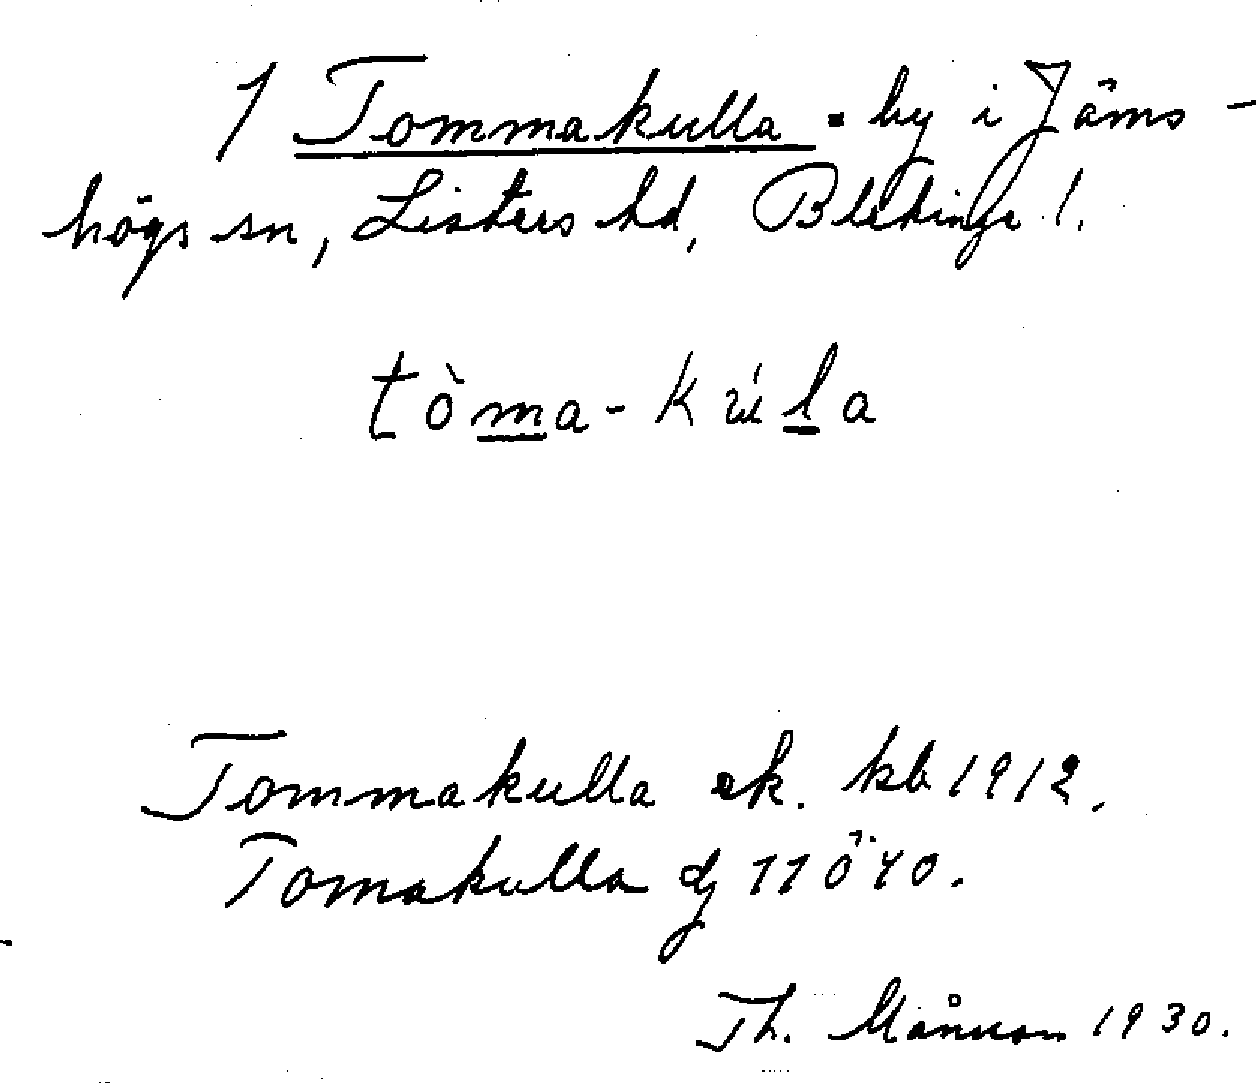 1 Tommakulla . by i Jäms-
högs sn, Listers hd, Blekinge l.
tòma-kúla
Tommakulla ek. kb 1912.
Tomakulla dj 11 Ö 40.
Th. Månsson 1930.